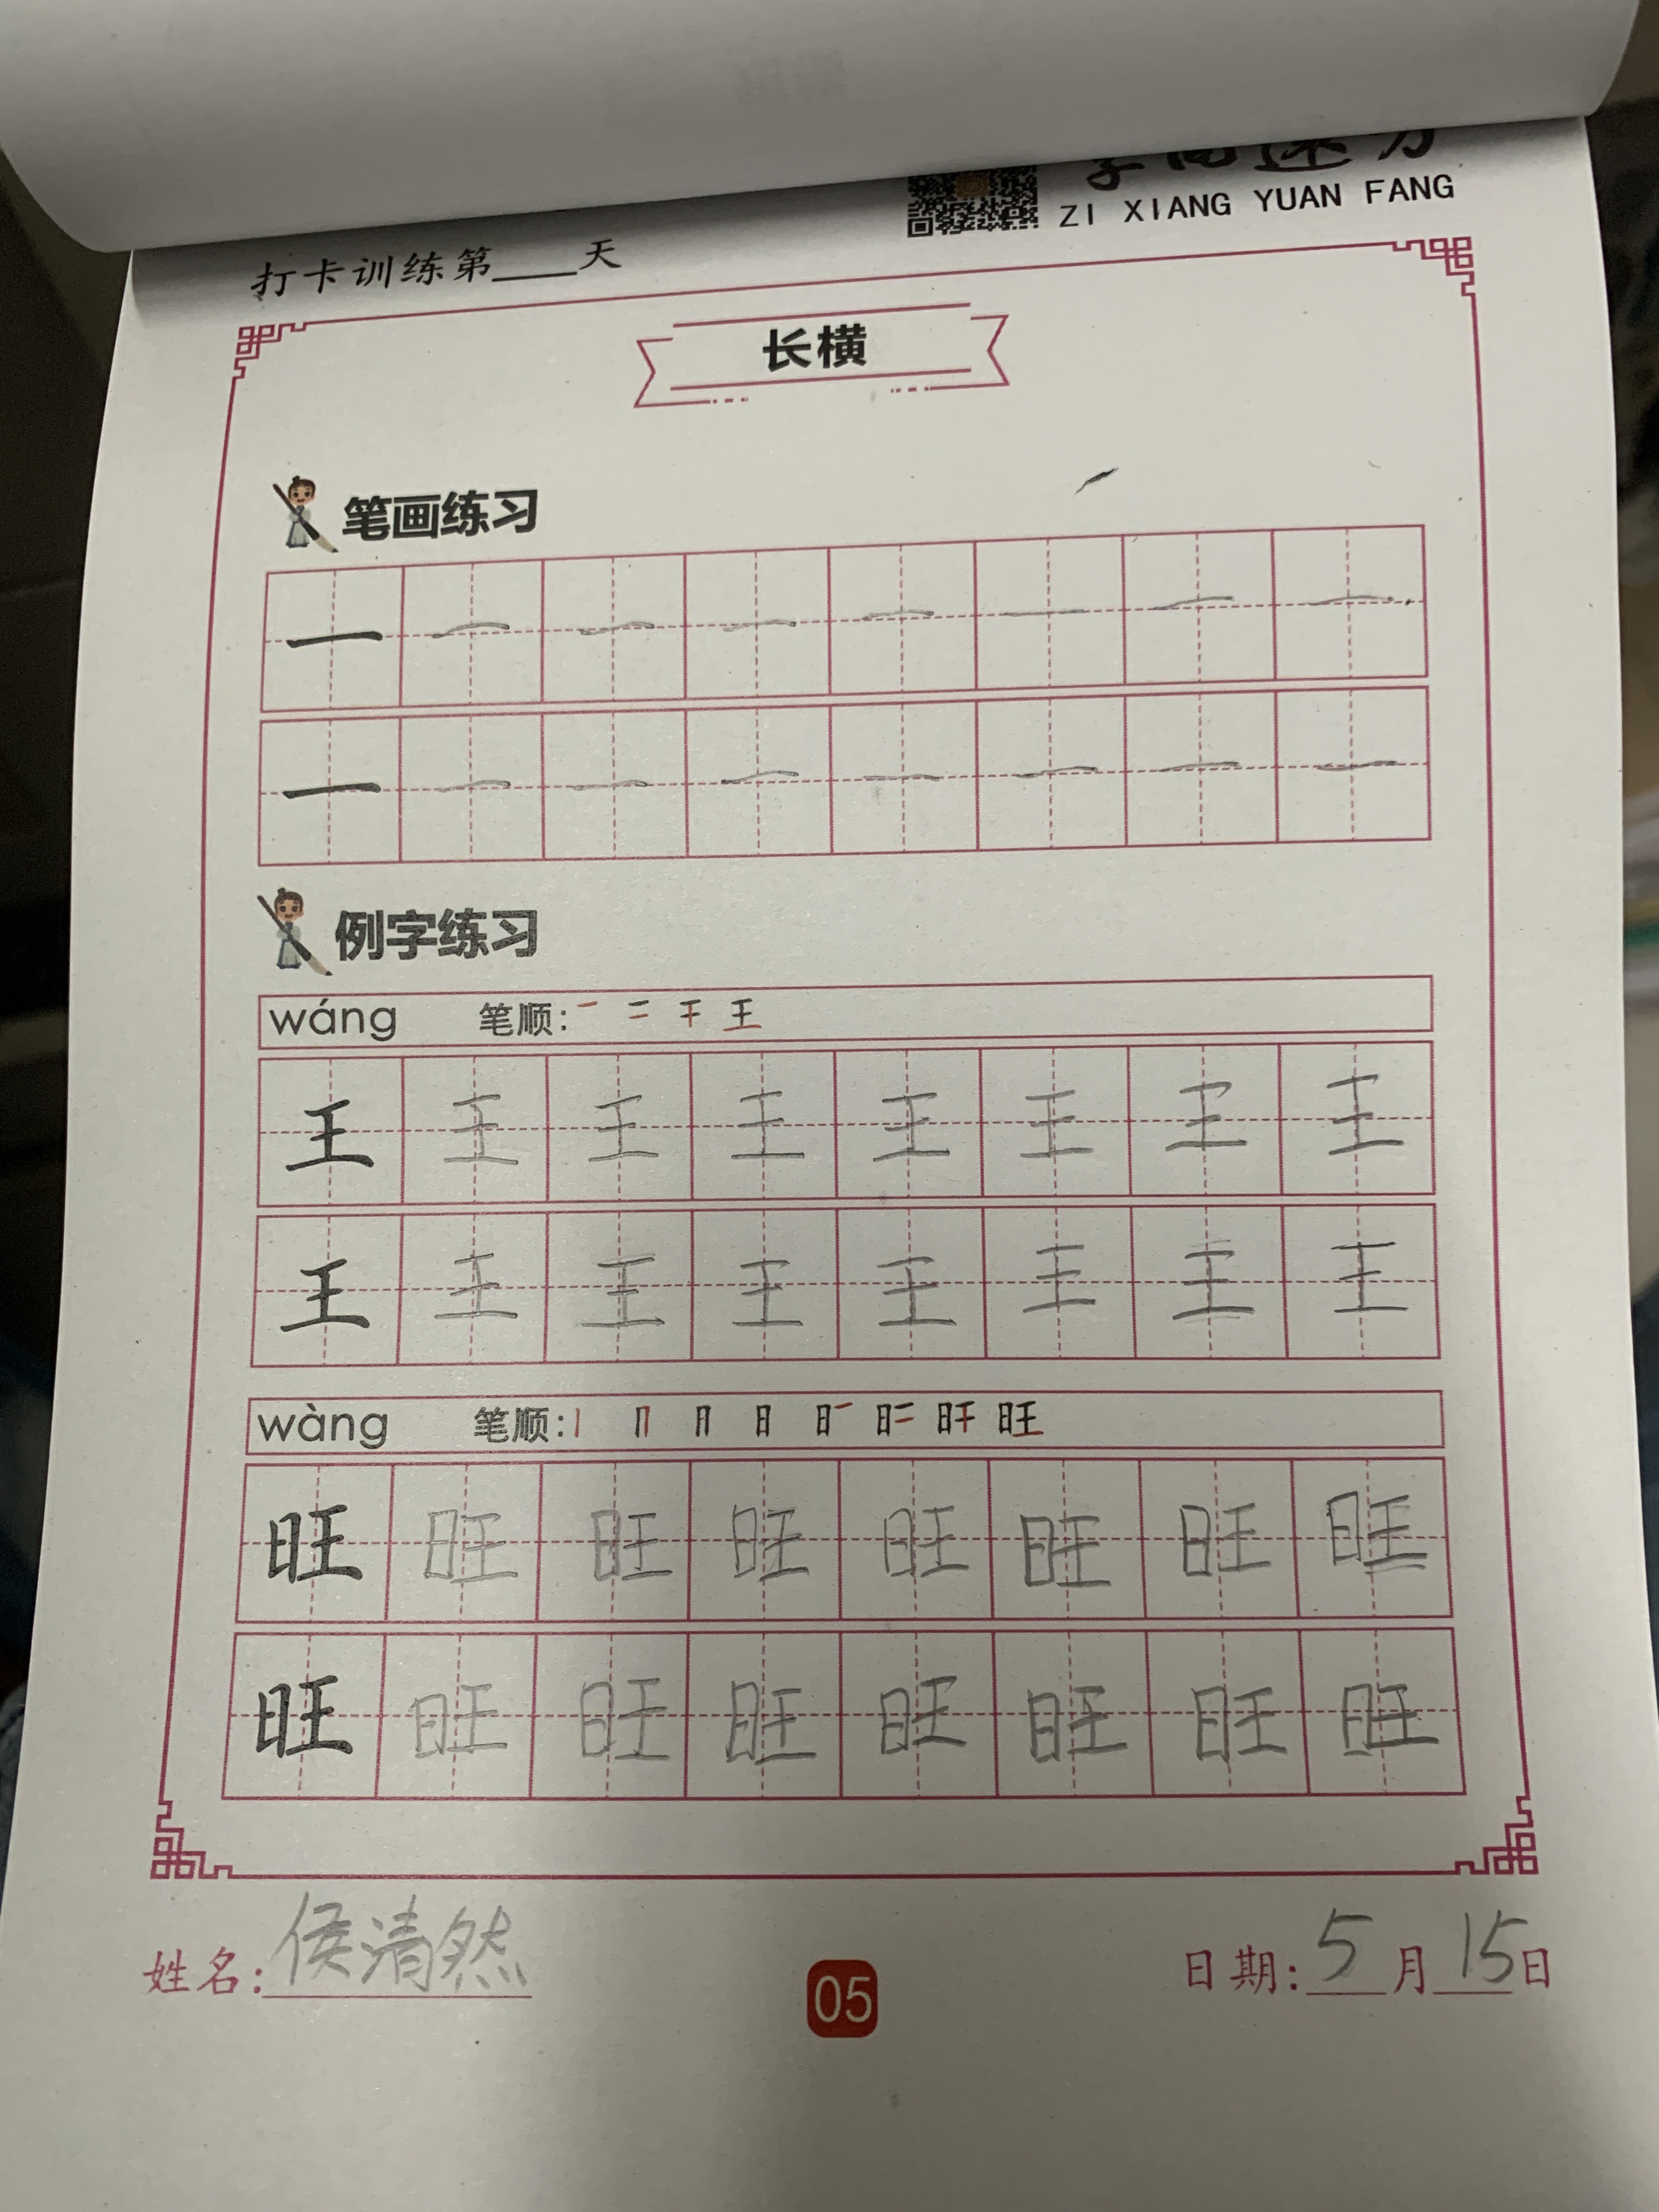 ZI XIANG YUAN FANG
打卡训练第____天
长横
笔画练习
一 一 一 一 一 一 一 一
一 一 一 一 一 一 一 一
例字练习
wáng 笔顺: 一 二 干 王
王 王 王 王 王 王 王 王
王 王 王 王 王 王 王 王
wàng 笔顺: 丨 冂 月 日 日一 日二 旰 旺
旺 旺 旺 旺 旺 旺 旺 旺
旺 旺 旺 旺 旺 旺 旺 旺
姓名: 侯清然 05 日期: 5 月 15 日